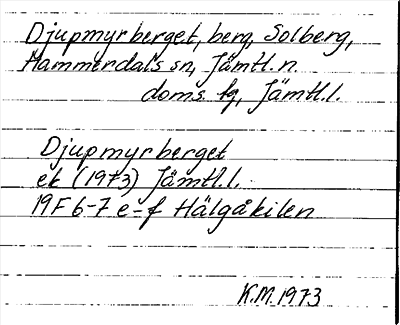 Djupmyrberget, berg, Solberg,
Hammerdals sn, Jämtl. n.
doms. tg, Jämtl.l.
Djupmyrberget
ek (1973) Jämtl.l.
19F 6-7 e-f Hälgåkilen
K.M. 1973